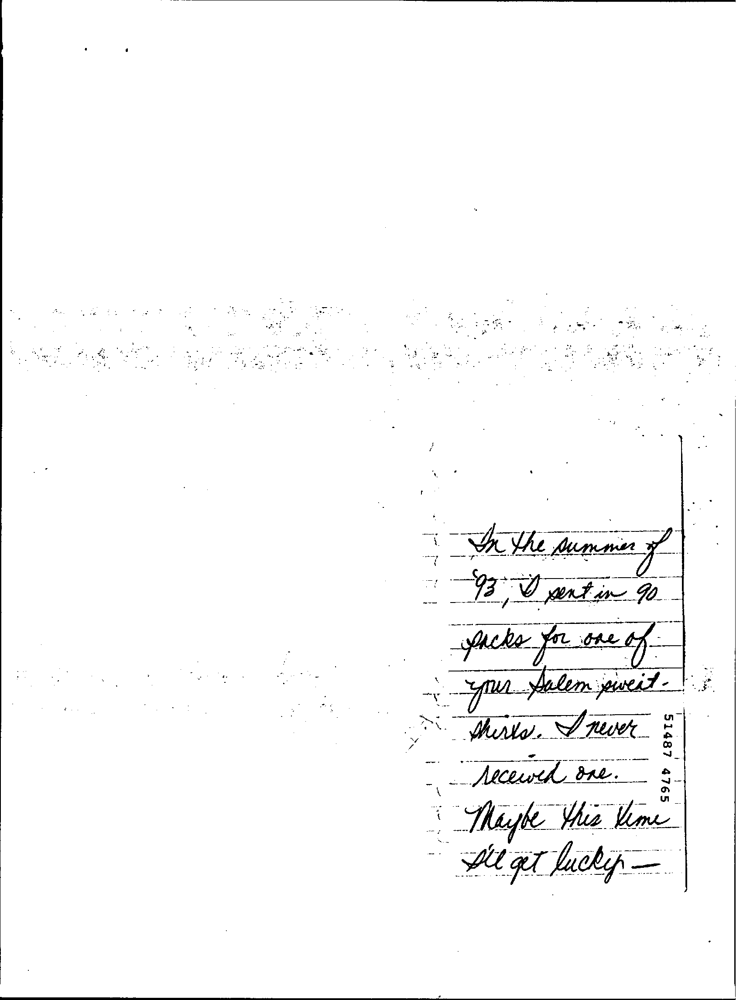 In the summer of
'93, I sent in 90
packs for one of
your Salem sweat-
shirts. I never
received one.
Maybe this time
I'll get lucky —
51487 4765